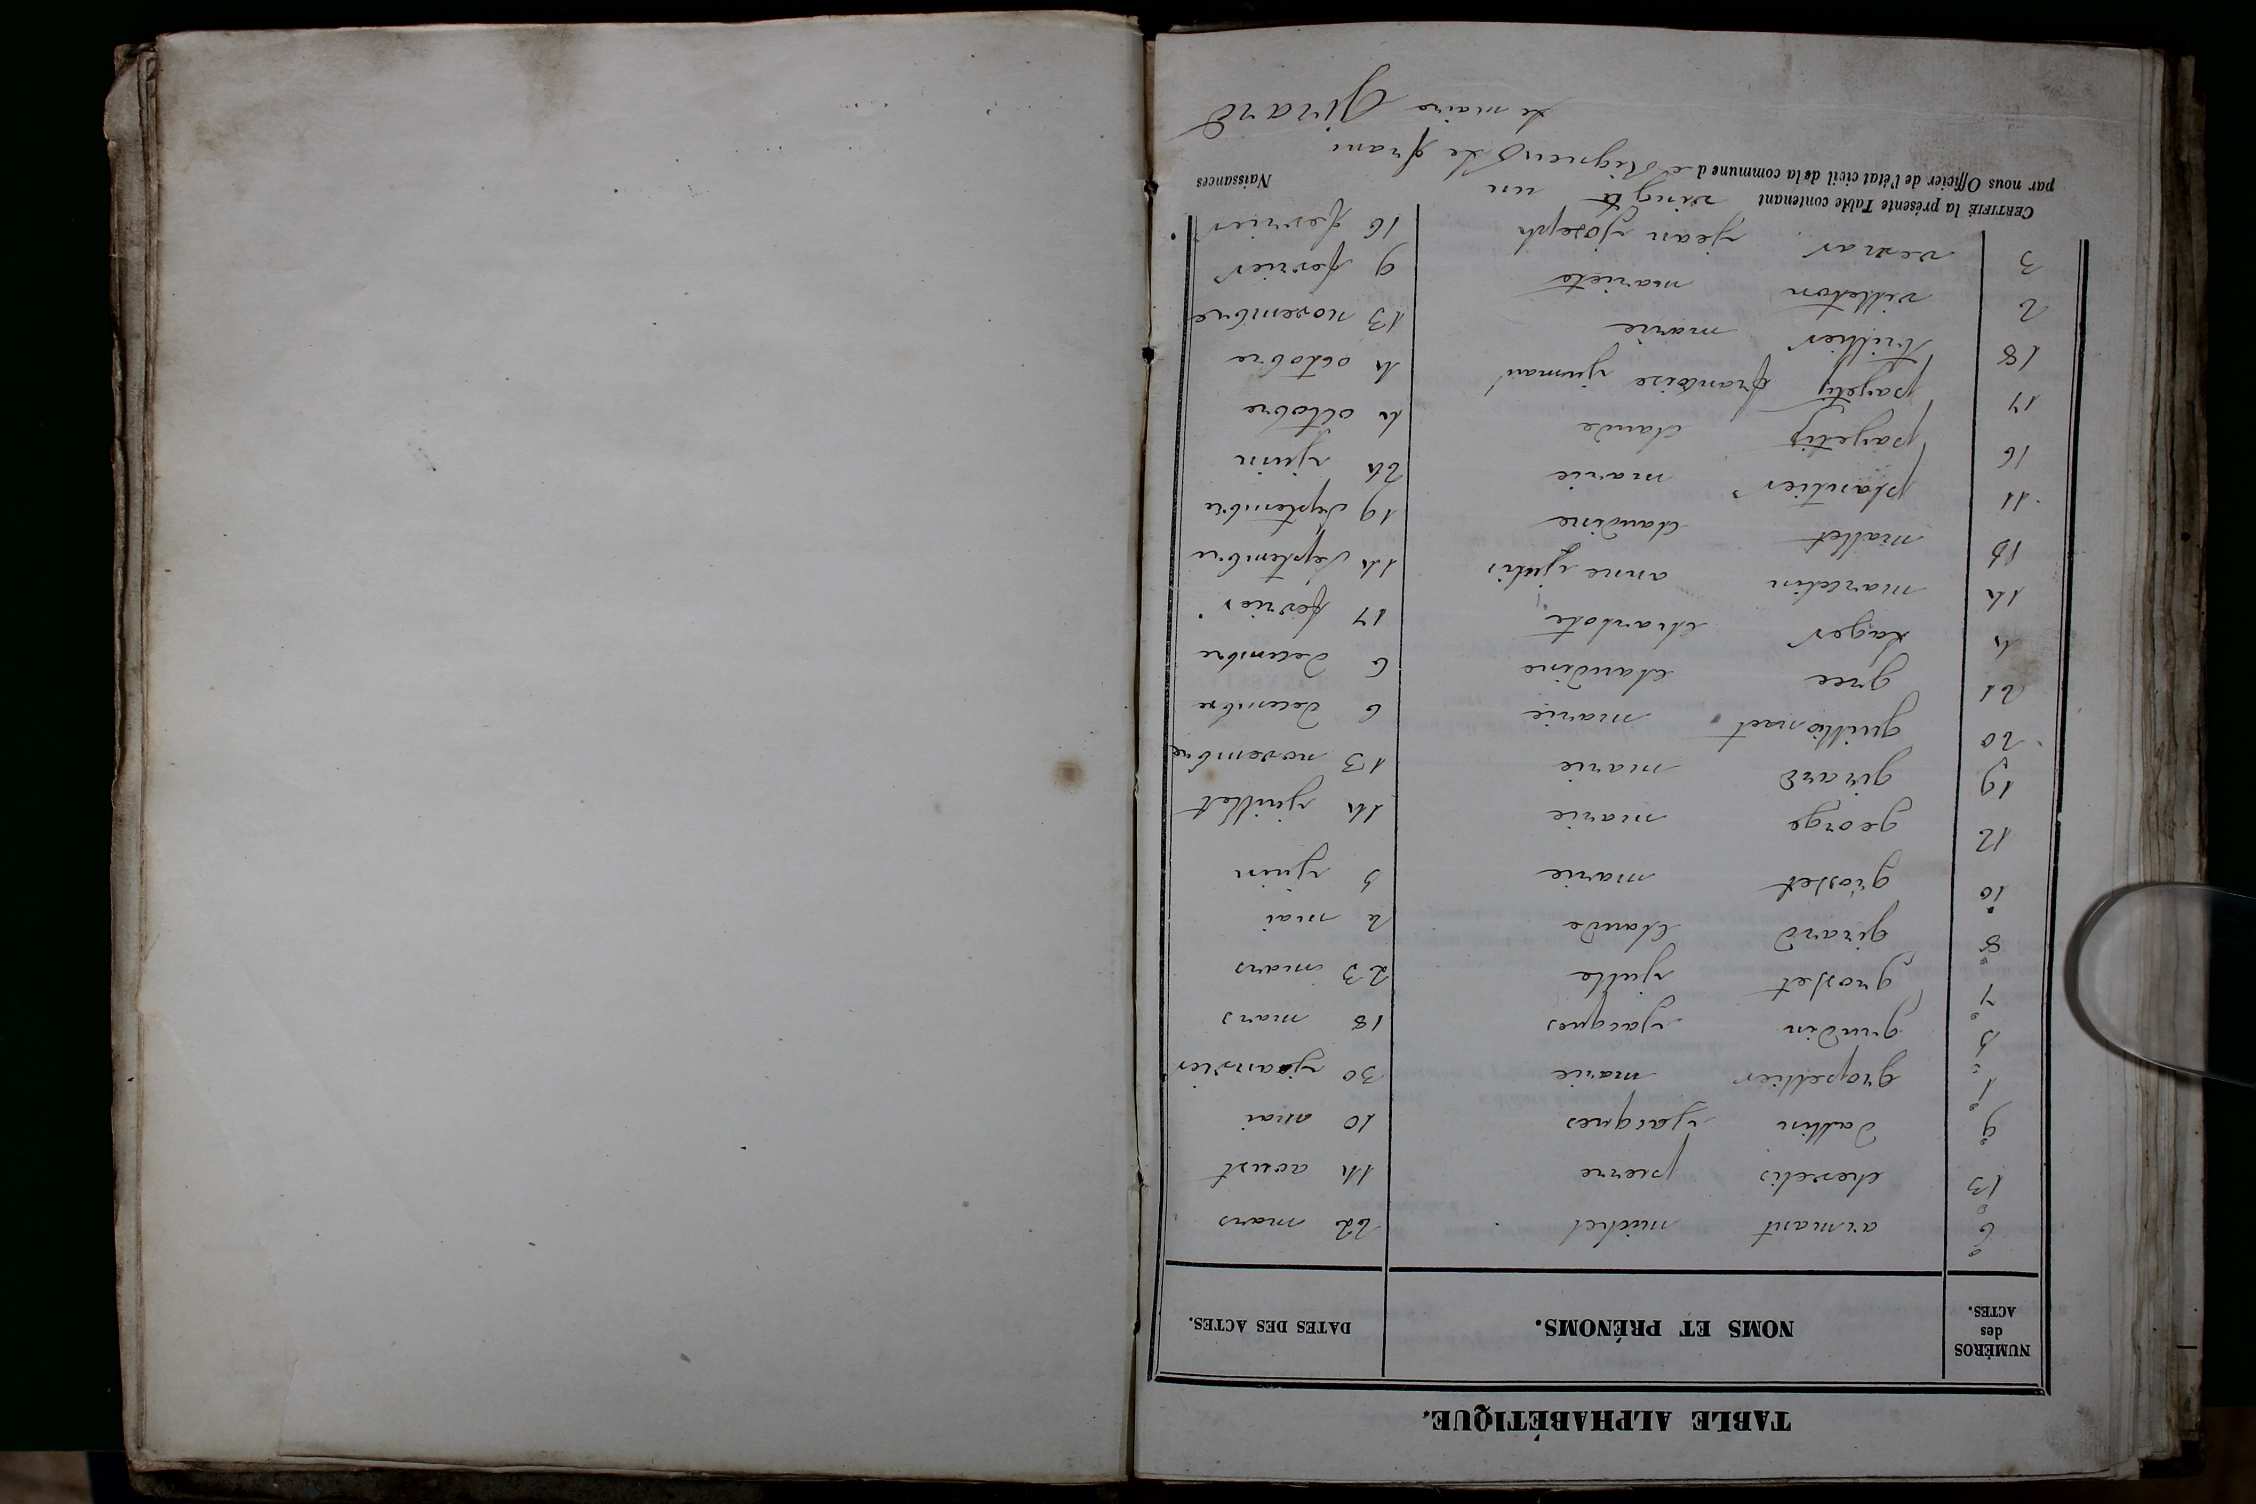 TABLE ALPHABÉTIQUE.
NUMÉROS des ACTES. NOMS ET PRÉNOMS. DATES DES ACTES.
6 armant michel 22 mars
13 chevelis pierre 14 aoust
9 dallin jacques 10 mai
1 gropellier marie 30 jeanvier
5 grudin jacques 18 mars
7 grosset julle 23 mars
8 girard claude 2 mai
10 grosset marie 5 juin
12 george marie 14 juillet
19 girard marie 13 novembre
20 guillionnet marie 6 decembre
21 gree claudine 6 decembre
4 lager charlote 17 fevrier
14 marcelin anne 14 septembre
15 miallet claudine 19 septembre
11 plantier marie 24 juin
16 payetij claude 4 octobre
17 payetij francoise 4 octobre
18 trillier marie 13 novembre
2 villeton mariete 9 fevrier
3 vernar jean joseph 16 fevrier
CERTIFIÉ la présente Table contenant vingt un Naissances
par nous Officier de l'état civil de la commune de Rignieu le franc
Le maire Girard